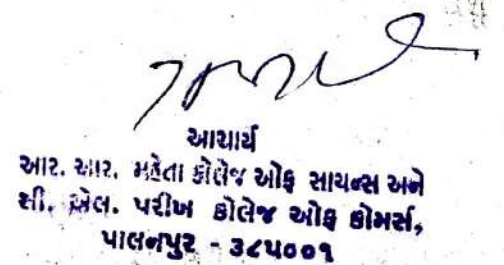 આચાર્ય
આર. આર. મહેતા કોલેજ ઓફ સાયન્સ અને
સી. એલ. પરીખ કોલેજ ઓફ કોમર્સ,
પાલનપુર - ૩૮૫૦૦૧